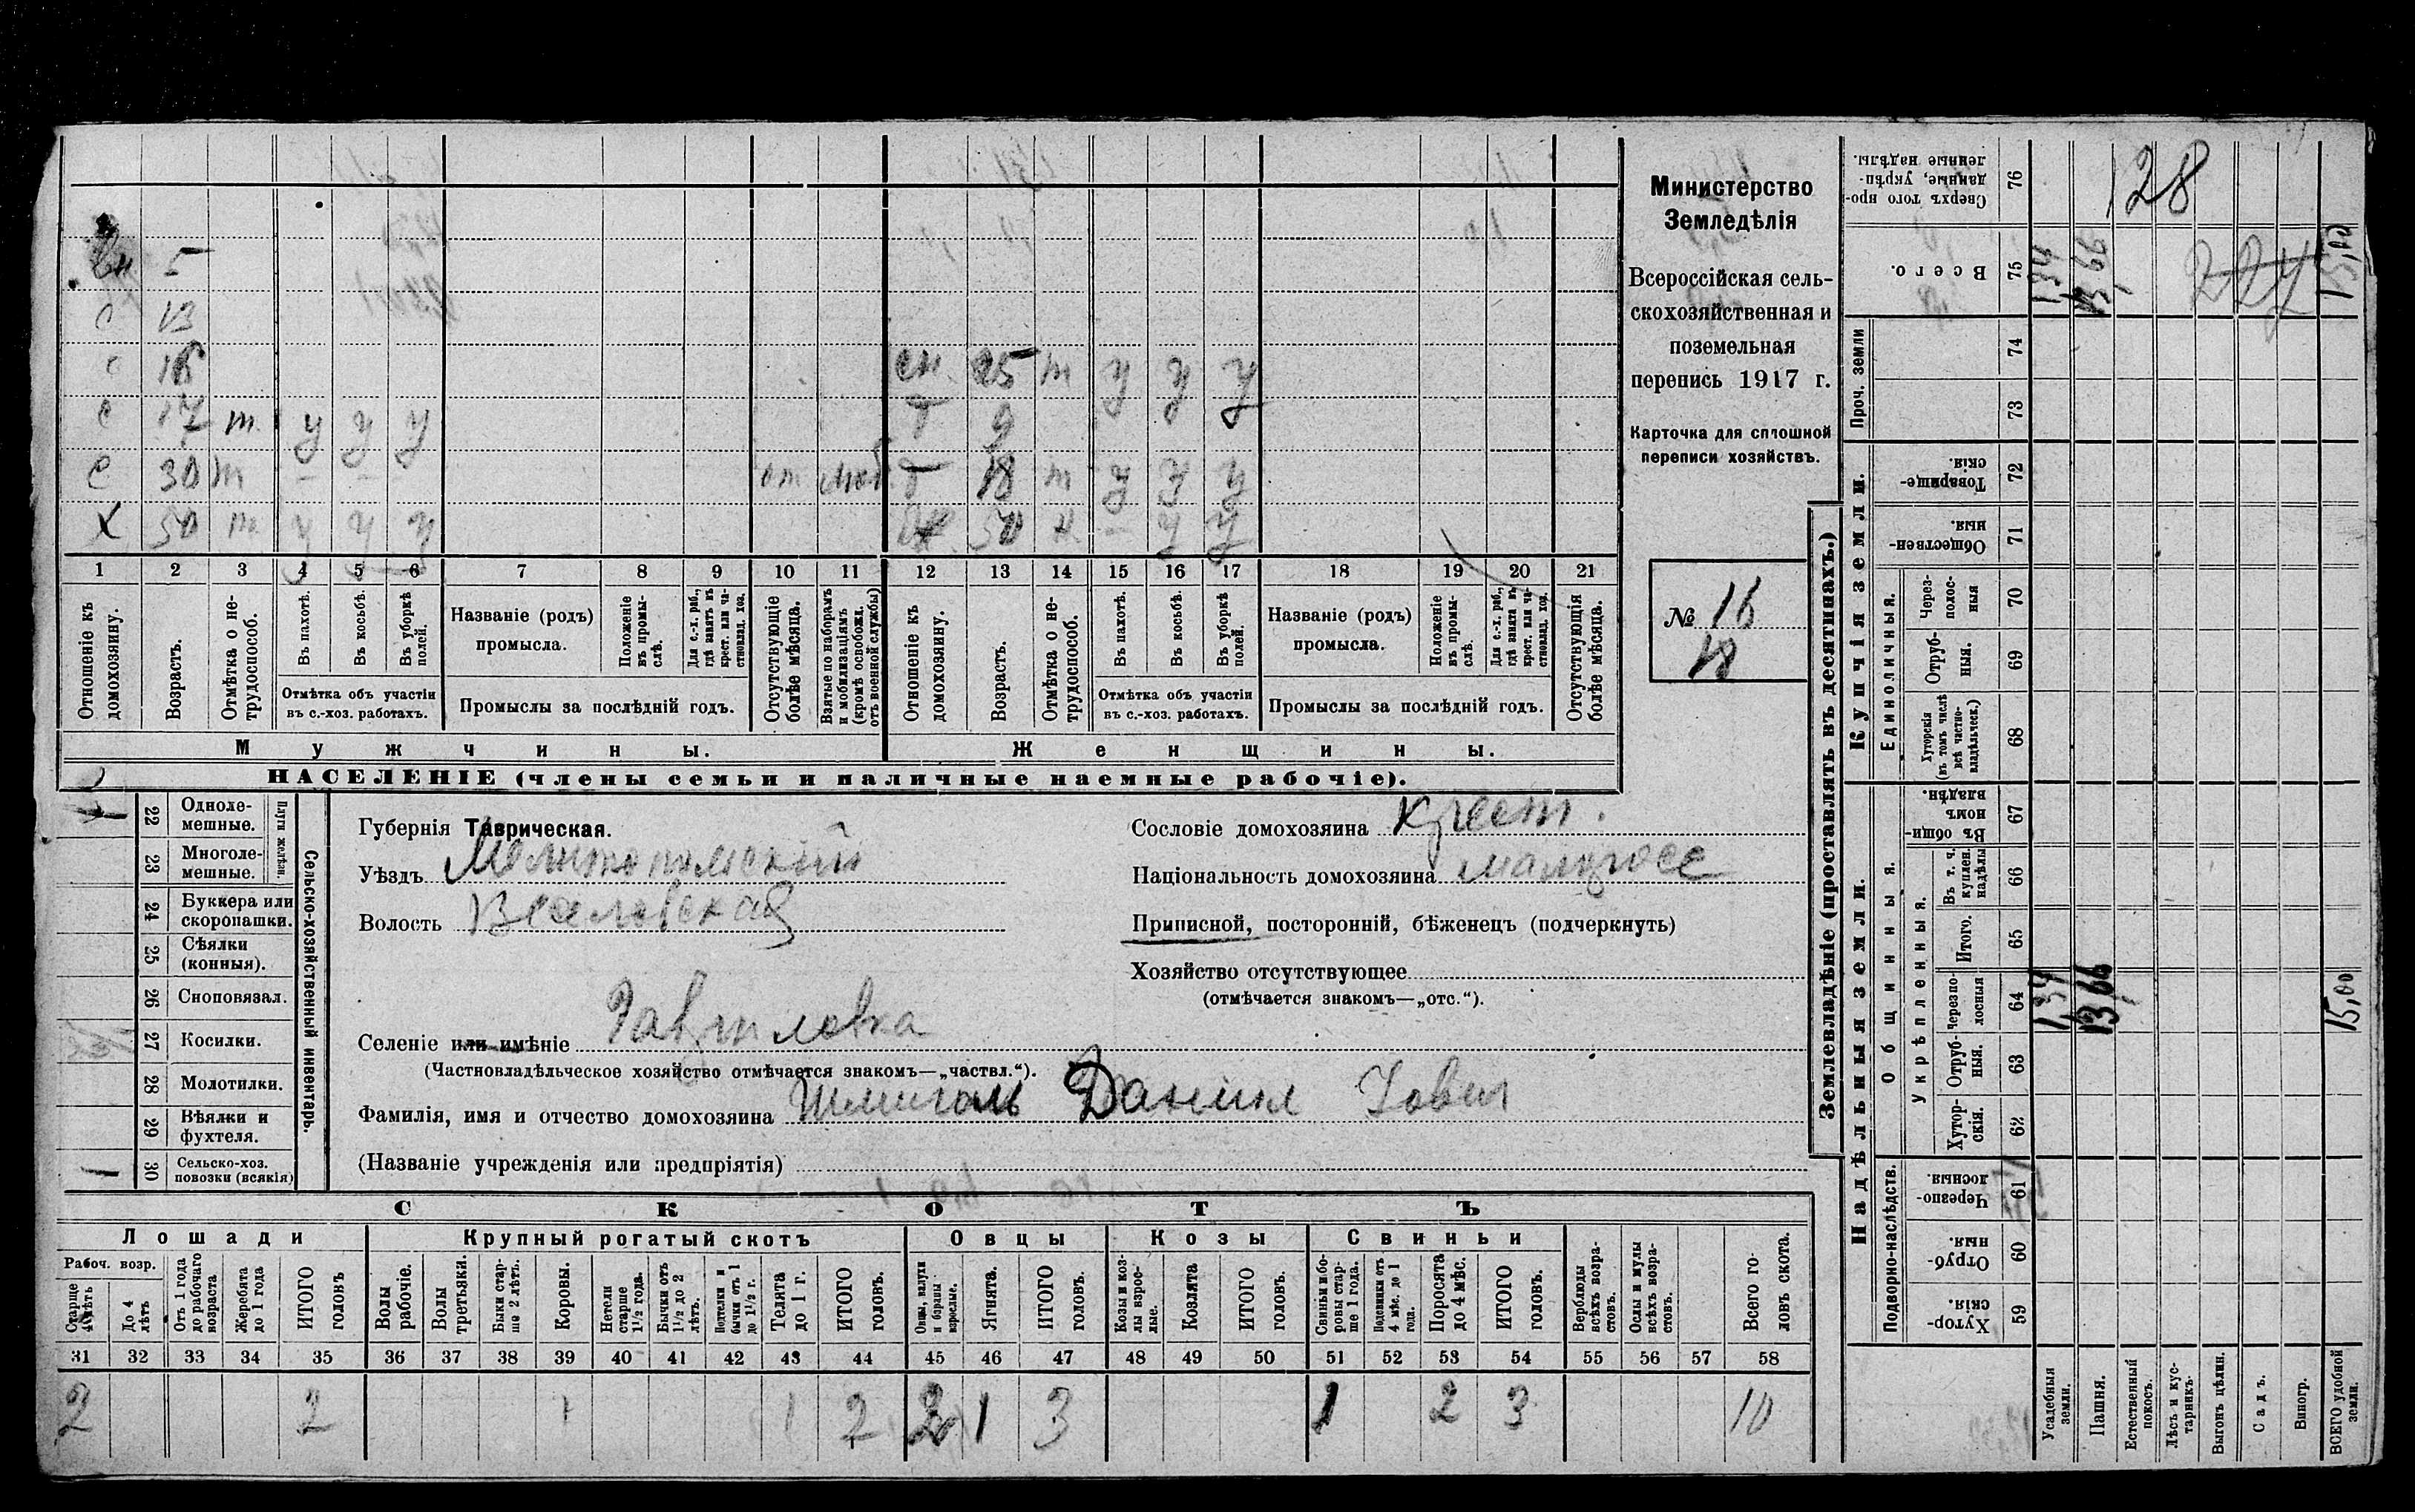 вн 5
с 13
с 16 сн. 25 т у у у
с 17 т. у у у т 9
с 30 т – – – от моб. т 18 т у у у
х 50 т. у у у 50 н. – у у
1 2 3 4 5 6 7 8 9 10 11 12 13 14 15 16 17 18 19 20 21
Отношеніе къ домохозяину.
Возрастъ.
Отмѣтка о не-трудоспособ.
Въ пахотѣ.
Въ косьбѣ.
Въ уборкѣ полей.
Отмѣтка объ участіи въ с.-хоз. работахъ.
Названіе (родъ) промысла.
Положеніе въ промы-слѣ.
Для с.-х. раб., гдѣ занятъ въ крест. или ча-стновлад. хоз.
Промыслы за послѣдній годъ.
Отсутствующіе болѣе мѣсяца.
Взятые по наборамъ и мобилизаціямъ (кромѣ освобожд. отъ военной службы)
Отношеніе къ домохозяину.
Возрастъ.
Отмѣтка о не-трудоспособ.
Въ пахотѣ.
Въ косьбѣ.
Въ уборкѣ полей.
Отмѣтка объ участіи въ с.-хоз. работахъ.
Названіе (родъ) промысла.
Положеніе въ промы-слѣ.
Для с.-х. раб., гдѣ занята въ крест. или ча-стновлад. хоз.
Промыслы за послѣдній годъ.
Отсутствующія болѣе мѣсяца.
Мужчины. Женщины.
НАСЕЛЕНІЕ (члены семьи и наличные наемные рабочіе).
Министерство
Земледѣлія
Всероссійская сель-
скохозяйственная и
поземельная
перепись 1917 г.
Карточка для сплошной
переписи хозяйствъ.
№ 16
18
Сельско-хозяйственный инвентарь.
Плуги желѣзн.
22 Одноле-мешные.
23 Многоле-мешные.
24 Буккера или скоропашки.
25 Сѣялки (конныя).
26 Сноповязал.
27 Косилки.
28 Молотилки.
29 Вѣялки и фухтеля.
30 Сельско-хоз. повозки (всякія)
Губернія Таврическая.
Уѣздъ Мелитопольскій
Волость Веселовская
Сословіе домохозяина крест.
Національность домохозяина малоросс
Приписной, посторонній, бѣженецъ (подчеркнуть)
Хозяйство отсутствующее
(отмѣчается знакомъ—„отс.“).
Селеніе или имѣніе Гавриловка
(Частновладѣльческое хозяйство отмѣчается знакомъ—„частвл.“).
Фамилія, имя и отчество домохозяина Шмигаль Даниил Іович
(Названіе учрежденія или предпріятія)
СКОТЪ
Лошади Крупный рогатый скотъ Овцы Козы Свиньи
Рабоч. возр.
Старше 4 лѣтъ
До 4 лѣтъ
Отъ 1 года до рабочаго возраста
Жеребята до 1 года
ИТОГО головъ
Волы рабочіе.
Волы третьяки.
Быки стар-ше 2 лѣтъ.
Коровы.
Нетели старше 1½ года.
Бычки отъ 1½ до 2 лѣтъ.
Подтелки и бычки отъ 1 до 1½ г.
Телята до 1 г.
ИТОГО головъ.
Овцы, валухи и бараны взрослые.
Ягнята.
ИТОГО головъ.
Козы и коз-лы взрос-лые.
Козлята
ИТОГО головъ.
Свиньи и бо-ровы стар-ше 1 года.
Подсвинки отъ 4 мѣс. до 1 года.
Поросята до 4 мѣс.
ИТОГО головъ.
Верблюды всѣхъ возра-стовъ.
Ослы и мулы всѣхъ возра-стовъ.
Всего го-ловъ скота.
31 32 33 34 35 36 37 38 39 40 41 42 43 44 45 46 47 48 49 50 51 52 53 54 55 56 57 58
2 2 1 1 2 2 1 3 1 2 3 10
Землевладѣніе (проставлять въ десятинахъ.)
Купчія земли.
Надѣльныя земли.
Проч. земли
Единоличныя.
Общинныя.
Укрѣпленныя.
Подворно-наслѣдств.
76 Сверхъ того про-данные, укрѣп-ленные надѣлы. 128
75 Всего. 1,34 13,66 15,00
74
73
72 Товарище-скія.
71 Обществен-ныя.
70 Через-полос-ныя
69 Отруб-ныя.
68 Хуторскія (въ томъ числѣ всѣ частно-владѣльческ.)
67 Въ общи-номъ владѣн.
66 Въ т. ч. куплен. надѣлы
65 Итого.
64 Черезпо-лосныя 1,34 13,66 15,00
63 Отруб-ныя.
62 Хутор-скія.
61 Черезпо-лосныя.
60 Отруб-ныя.
59 Хутор-скія.
Усадебныя земли.
Пашня.
Естественный покосъ.
Лѣсъ и кус-тарникъ.
Выгонъ цѣлин.
Садъ.
Виногр.
ВСЕГО удобной земли.